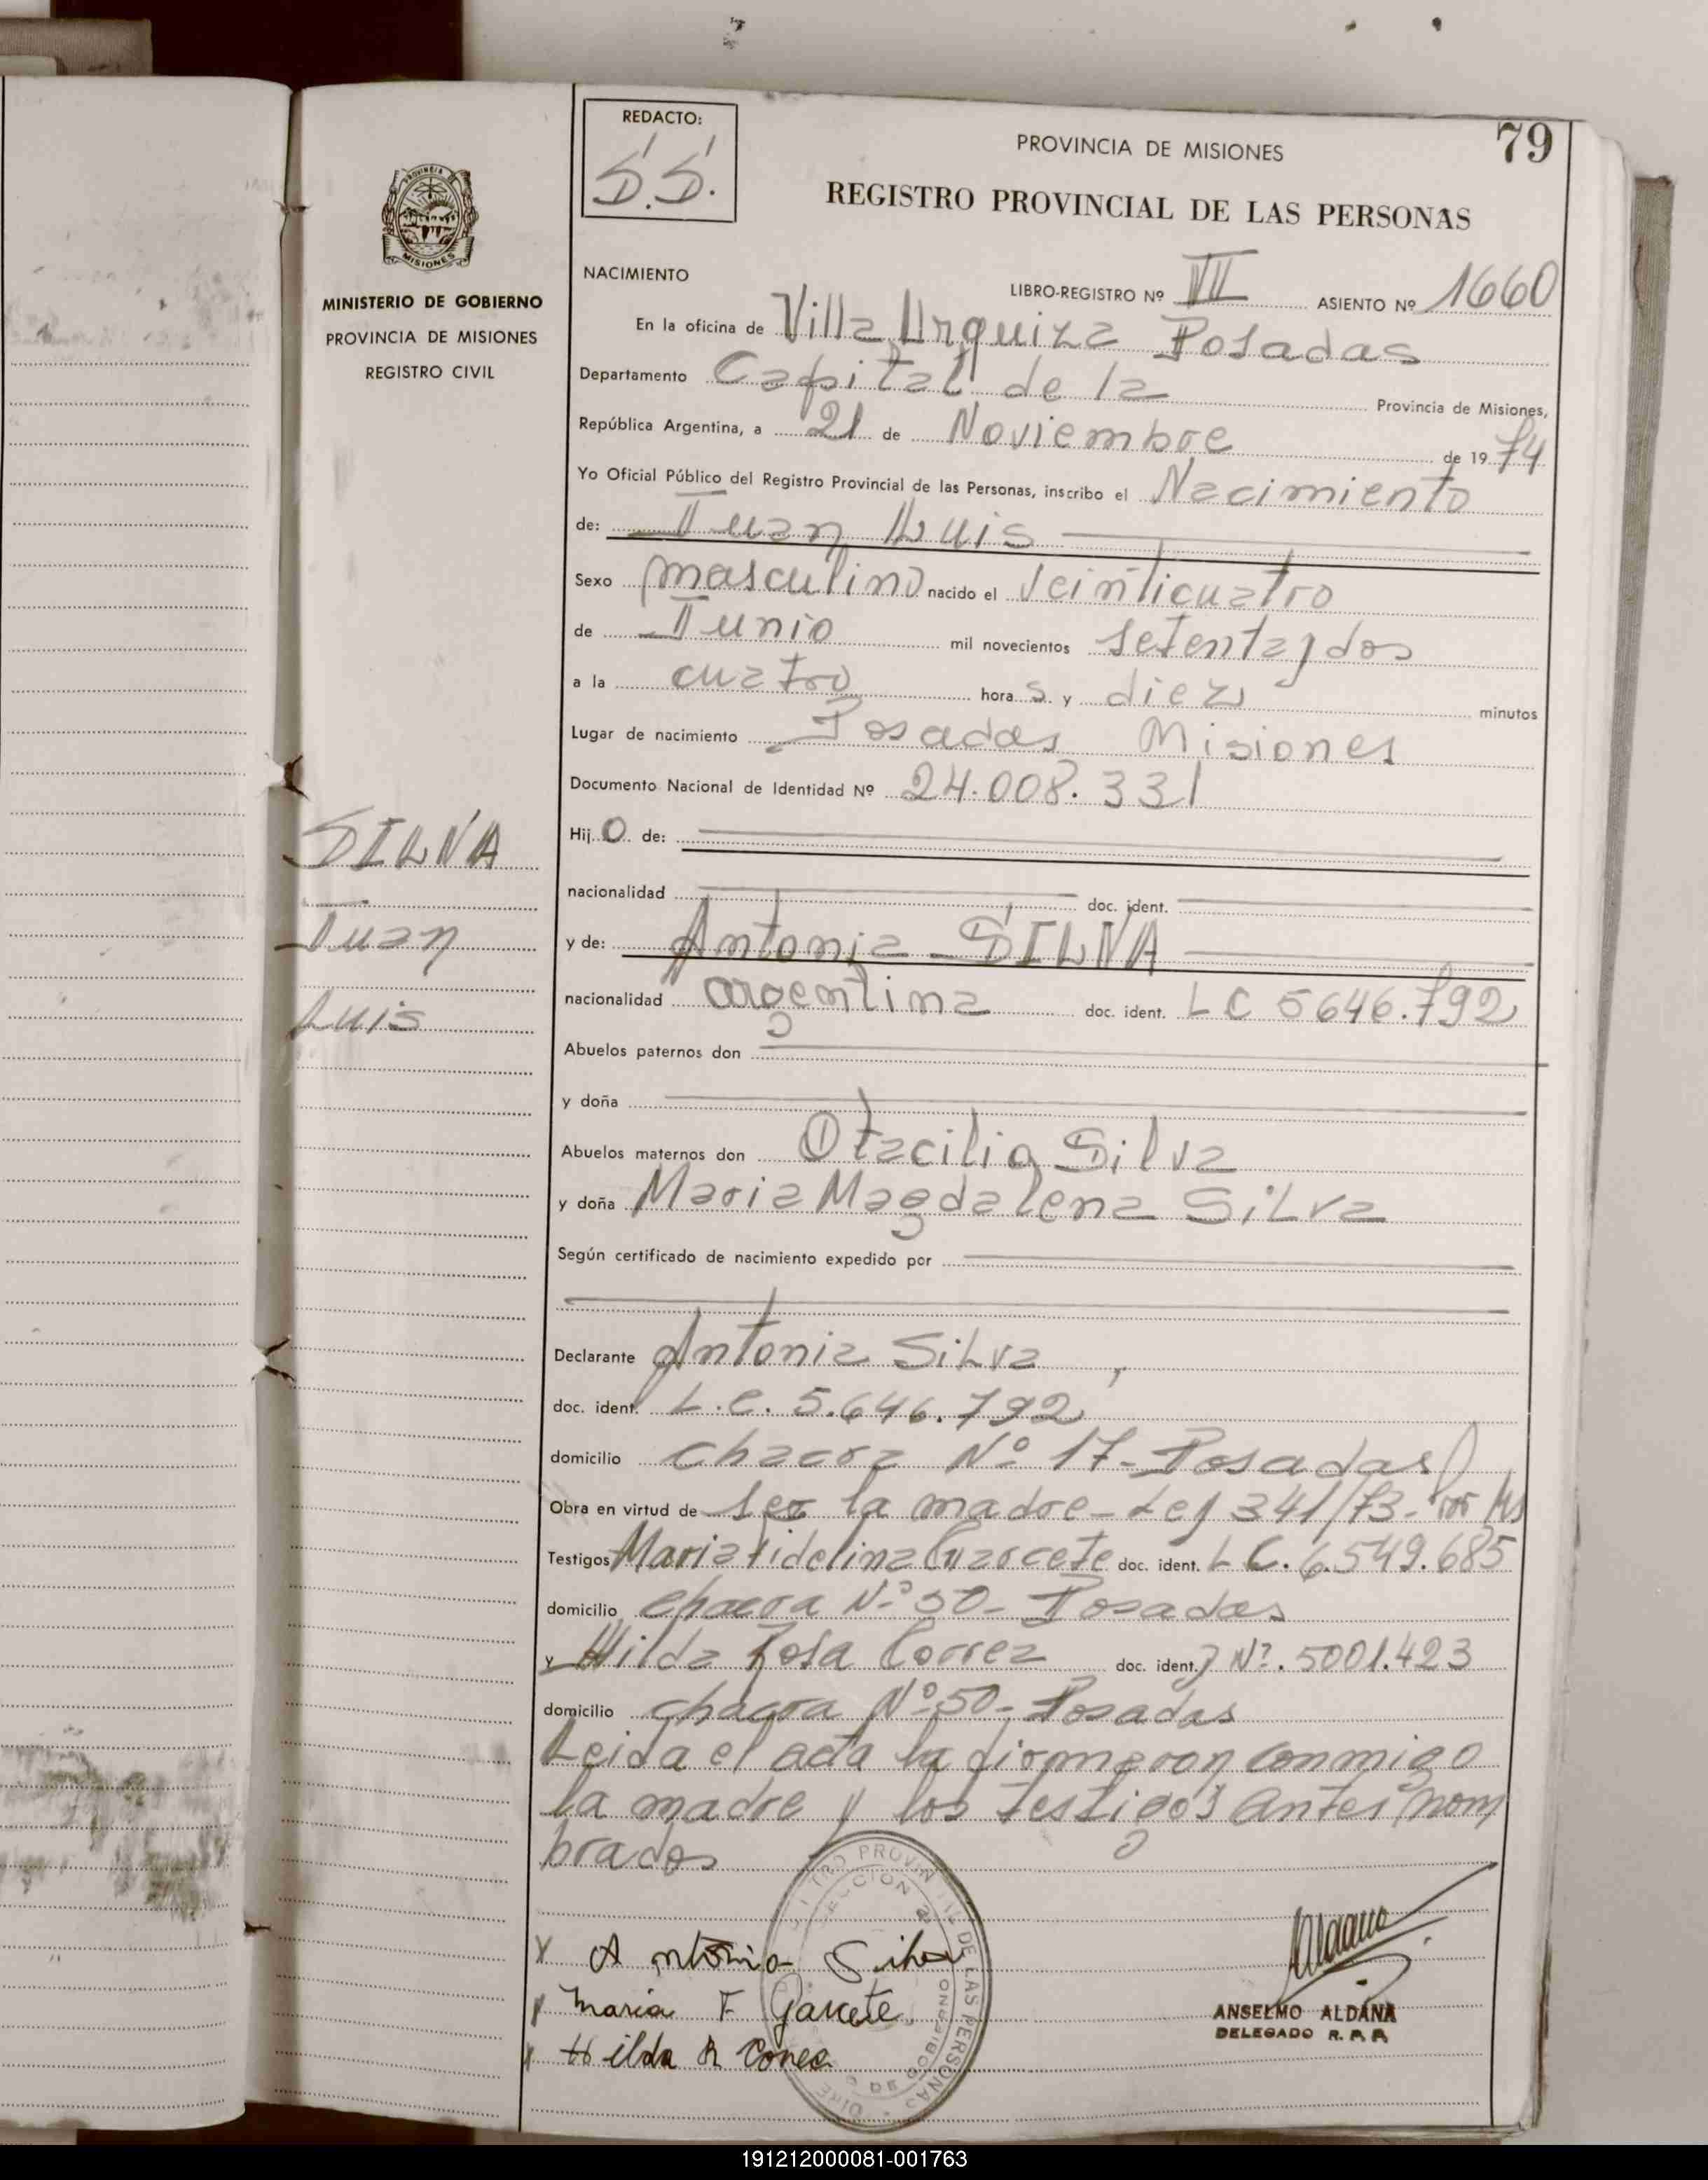 REDACTO:
S.S.
79
PROVINCIA DE MISIONES
REGISTRO PROVINCIAL DE LAS PERSONAS
PROVINCIA DE
MISIONES
MINISTERIO DE GOBIERNO
PROVINCIA DE MISIONES
REGISTRO CIVIL
NACIMIENTO
LIBRO-REGISTRO Nº VII ASIENTO Nº 1660
En la oficina de Villa Urquiza Posadas
Departamento Capital de la Provincia de Misiones,
República Argentina, a 21 de Noviembre de 1974
Yo Oficial Público del Registro Provincial de las Personas, inscribo el Nacimiento
de: Juan Luis
Sexo masculino nacido el veinticuatro
de Junio mil novecientos setenta y dos
a la cuatro hora s. y diez minutos
Lugar de nacimiento Posadas Misiones
Documento Nacional de Identidad Nº 24.008.331
Hij o de:
SILVA
Juan
Luis
nacionalidad doc. ident.
y de: Antonia SILVA
nacionalidad argentina doc. ident. LC 5646.792
Abuelos paternos don
y doña
Abuelos maternos don Otacilio Silva
y doña Maria Magdalena Silva
Según certificado de nacimiento expedido por
Declarante Antonia Silva,
doc. ident. L.C. 5.646.792
domicilio chacra Nº 17- Posadas
Obra en virtud de ser la madre - Ley 341/73-
Testigos Maria Fidelina Garcete doc. ident. LC. 6.549.685
domicilio chacra Nº 50- Posadas
y Hilda Rosa Correa doc. ident. Nº. 5001.423
domicilio chacra Nº 50- Posadas
Leida el acta la firmaron conmigo
la madre y los testigos antes nom
brados
x Antonia Silva
x Maria F. Garcete
x Hilda R Correa
ANSELMO ALDANA
DELEGADO R. P. P.
191212000081-001763